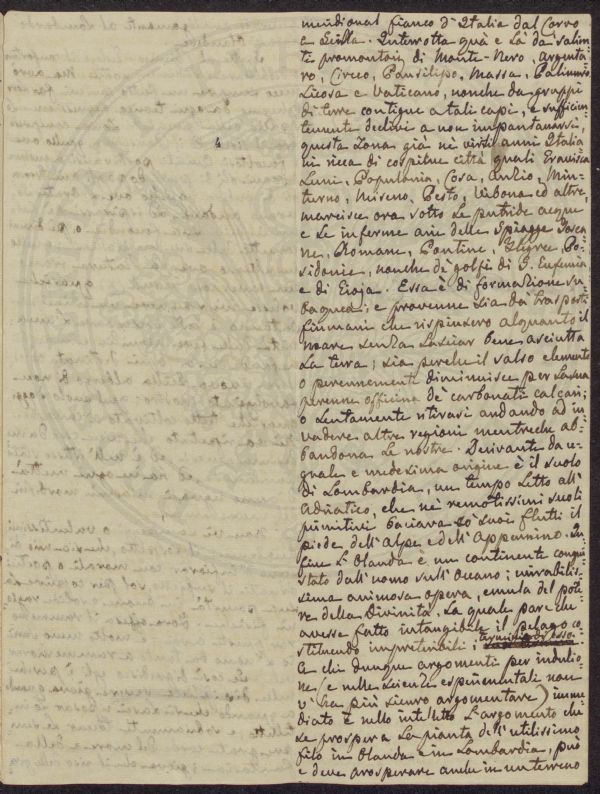 meridional fianco d'Italia dal Corvo
a Scilla. Interrotta quà e là da salien=
ti promontorj di Monte-Nero, Argenta=
ro, Circeo, Pausilipo, Massa, Palinuro
Licosa e Vaticano, nonche da gruppi
di terre contigue a tali capi, e sufficien=
temente declivi a non impantanarsi,
questa Zona già nei virili anni Italia=
ni ricca di cospicue città quali Gravisca
Luni, Populonia, Cosa, Anzio, Min=
turno, Miseno, Pesto, Vibona ed altre,
marcisce ora sotto le putride acque
e le inferme arie delle Spiagge Tosca
ne, Romane, Pontine, Flegree, Po=
sidonie, nonche de' golfi di S. Eufemia
e di Gioja. Essa è di formazione su=
bacquea; e provenne sia da trasporti
fiumani che rispinsero alquanto il
mare senza lasciar bene asciutta
la terra; sia perche il salso elemento
o perennemente diminuisce per la sua
perenne officina de' carbonati calcari;
o lentamente ritirasi andando ad in=
vadere altre regioni mentreche ab=
bandona le nostre. Derivante da e=
guale e medesima origine è il suolo
di Lombardia, un tempo letto all'
Adriatico, che nei remotissimi secoli
primitivi baciava co' suoi flutti il
piede dell'Alpe e dell'Appennino. In=
fine l'Olanda è un continente conqui
stato dall'uomo sull'Oceano; mirabilis=
sima animosa opera, emula del pote=
re della Divinità, la quale pare che
avesse fatto intangibile il pelago co=
stituendo impreteribili
A chi dunque argomenti per induzio
ne, e nelle scienze esperimentali non
v'ha più sicuro argomentare) imme
diato è nello intelletto l'argomento che
se prospera la pianta dell'utilissimo
Lito in Olanda e in Lombardia, può
e deve prosperare anche in un terreno